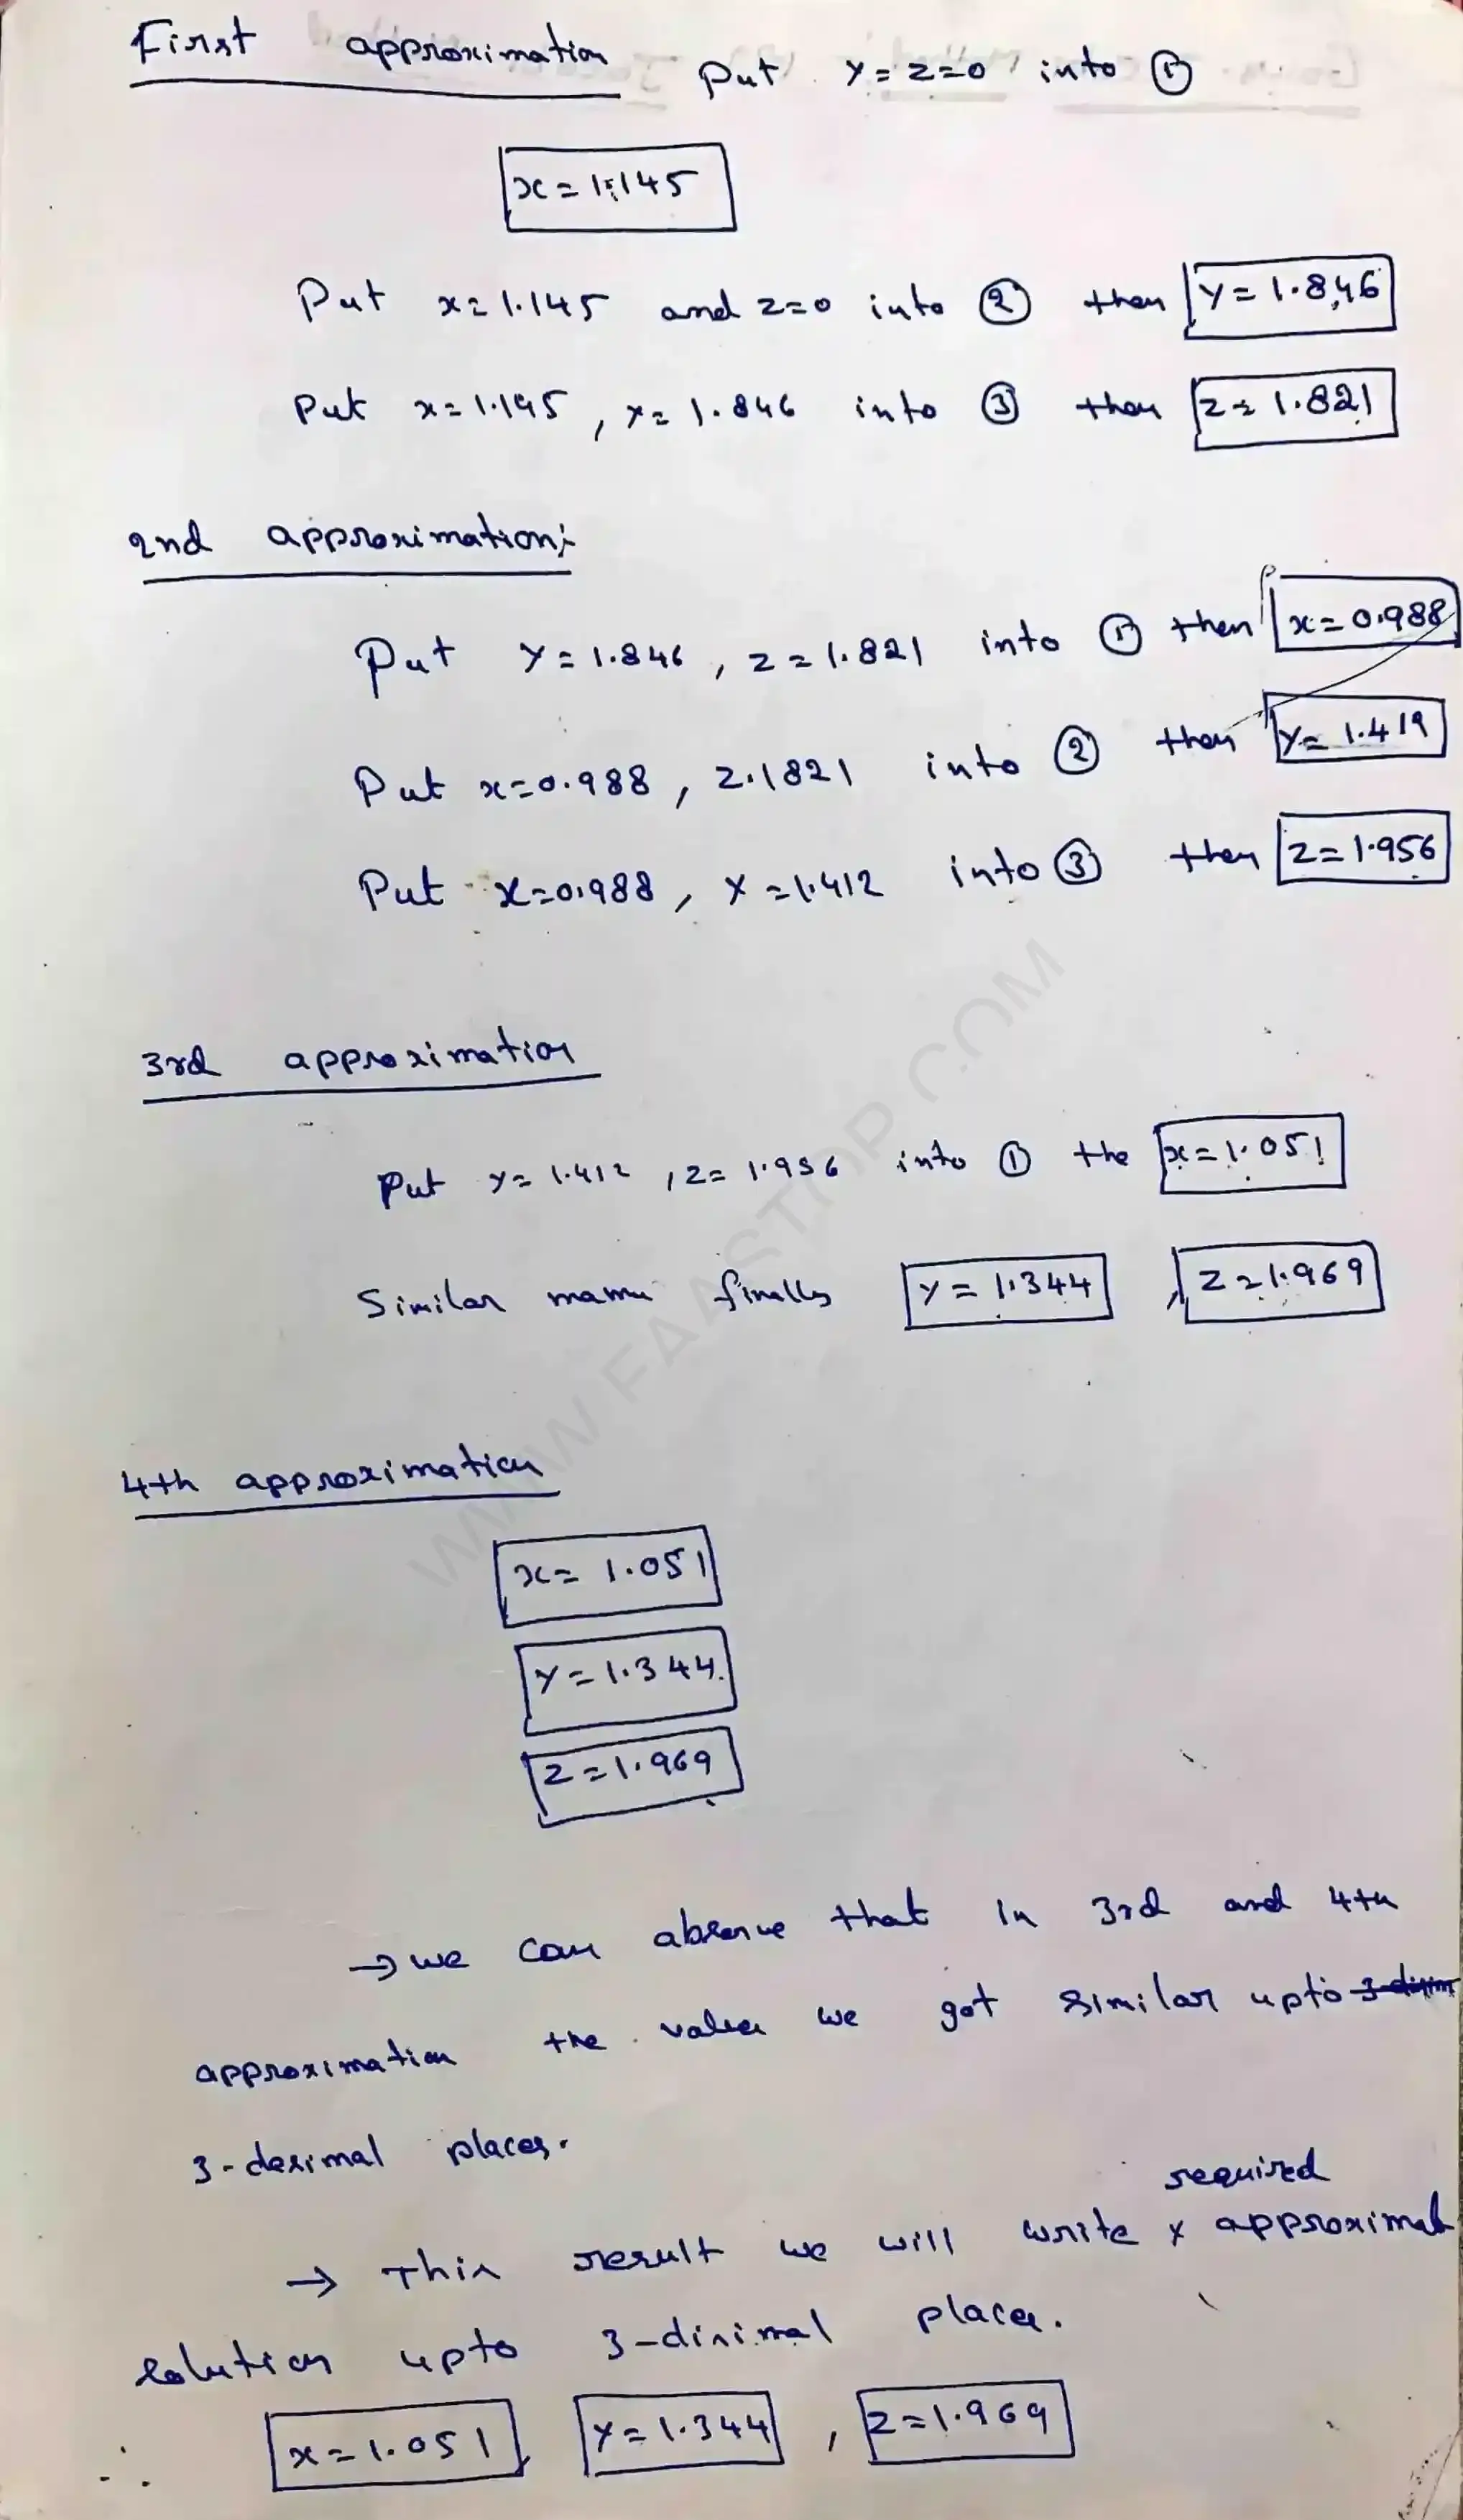 First approximation Put y=z=0 into ①
x=1.145
Put x=1.145 and z=0 into ② then y=1.846
Put x=1.145, y=1.846 into ③ then z=1.821
2nd approximation:
Put y=1.846, z=1.821 into ① then x=0.988
Put x=0.988, z.1821 into ② then y=1.419
Put x=0.988, y=1.412 into ③ then z=1.956
3rd approximation
Put y=1.412, z=1.956 into ① the x=1.051
Similar finally y=1.344, z=1.969
4th approximation
x=1.051
y=1.344
z=1.969
→ we can observe that in 3rd and 4th
approximation the values we got similar upto
3-decimal places.
required
→ This result we will write x approximate
solution upto 3-dicimal places.
∴ x=1.051, y=1.344, z=1.969
WWW.FAASTOP.COM